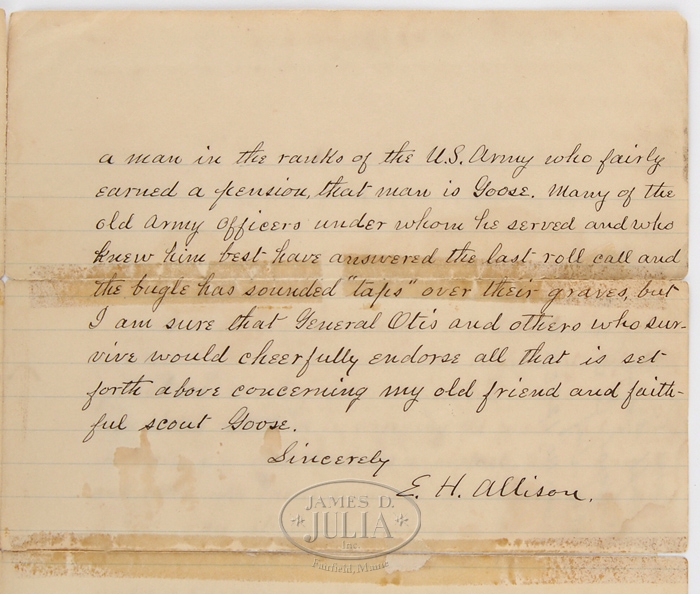 a man in the ranks of the U.S. Army who fairly
earned a pension, that man is Goose. Many of the
old army officers under whom he served and who
knew him best have answered the last roll call and
the bugle has sounded "taps" over their graves, but
I am sure that General Otis and others who sur-
vive would cheerfully endorse all that is set
forth above concerning my old friend and faith-
ful scout Goose.
Sincerely
E. H. Allison.
JAMES D.
JULIA
Inc.
Fairfield, Maine